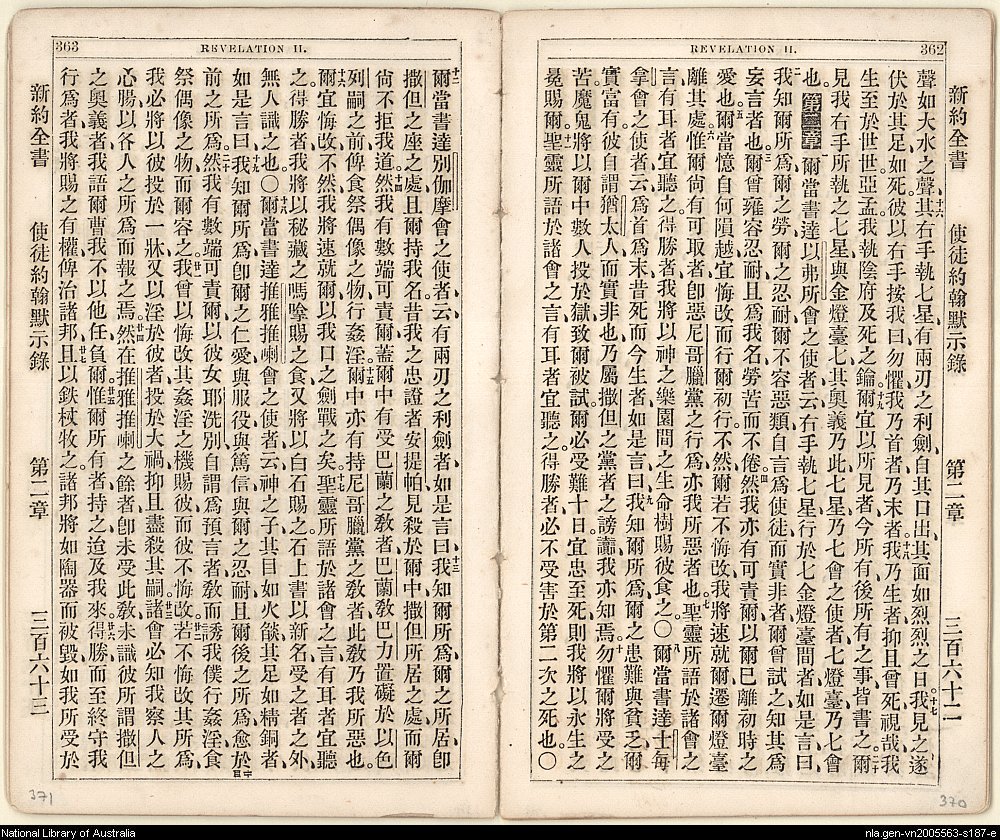 REVELATION II. 362
新約全書 使徒約翰默示錄 第二章 三百六十二
聲如大水之聲、十六其右手執七星、有兩刃之利劍、自其口出、其面如烈烈之日。十七我見之遂
伏於其足如死。彼以右手按我曰、勿懼、我乃首者、乃末者。十八我乃生者、抑且曾死、視哉、我
生至於世世。亞孟。我執陰府及死之鑰。十九爾宜以所見者、今所有、後所有之事、皆書之。二十爾
見我右手所執之七星、與金燈臺七、其奧義乃此、七星乃七會之使者、七燈臺、乃七會
也。第二章 一爾當書達以弗所會之使者云、右手執七星、行於七金燈臺間者、如是言曰、
二我知爾所爲、爾之勞、爾之忍耐、爾不容惡類、自言爲使徒而實非者、爾曾試之、知其爲
妄言者也。三爾曾雍容忍耐、且爲我名、勞苦而不倦。四然我亦有可責爾、以爾已離初時之
愛也。五爾當憶自何隕越、宜悔改而行爾初行。不然、爾若不悔改、我將速就爾、遷爾燈臺
離其處。六惟爾尙有可取者、卽惡尼哥臘黨之行、爲亦我所惡者也。七聖靈所語於諸會之
言、有耳者宜聽之。得勝者、我將以神之樂園間之生命樹賜彼食之。〇八爾當書達士每
拿會之使者云、爲首爲末、昔死而今生者、如是言曰、九我知爾所爲、爾之患難與貧乏、爾
實富、有彼自謂猶太人而實非也、乃屬撒但之黨者之謗讟、我亦知焉。十勿懼爾將受之
苦、魔鬼將以爾中數人投於獄、致爾被試、爾必受難十日、宜忠至死、則我將以永生之
冕賜爾。十一聖靈所語於諸會之言、有耳者宜聽之。得勝者、必不受害於第二次之死也。〇
370
363 REVELATION II.
十二爾當書達別伽摩會之使者云、有兩刃之利劍者、如是言曰、十三我知爾所爲、爾之所居、卽
撒但之座之處、且爾持我名、昔我之忠證者安提帕、見殺於爾中、撒但所居之處、而爾
尙不拒我道。十四然我有數端可責爾、蓋爾中有受巴蘭之敎者、巴蘭敎巴力置礙於以色
列嗣之前、俾食祭偶像之物、行姦淫。十五爾中亦有持尼哥臘黨之敎者、此敎乃我所惡也。
十六爾宜悔改、不然、我將速就爾、以我口之劍戰之矣。十七聖靈所語於諸會之言、有耳者宜聽
之。得勝者、我將以秘藏之嗎嗱賜之食、又將以白石賜之、石上書以新名、受之者之外、
無人識之也。〇十八爾當書達推雅推喇會之使者云、神之子、其目如火燄、其足如精銅者、
如是言曰、十九我知爾所爲、卽爾之仁愛、與服役、與篤信、與爾之忍耐、且爾後之所爲、愈於
前之所爲。二十然我有數端可責爾、以彼女耶洗別、自謂爲預言者、敎而誘我僕行姦淫、食
祭偶像之物、而爾容之。廿一我曾以悔改其姦淫之機賜彼、而彼不悔改。廿二若不悔改其所爲、
我必將以彼投於一牀、又以淫於彼者投於大禍、抑且盡殺其嗣。廿三諸會必知我察人之
心腸、以各人之所爲而報之焉。廿四然在推雅推喇之餘者、卽未受此敎、未識彼所謂撒但
之奧義者、我語爾曹、我不以他任負爾。廿五惟爾所有者、持之迨及我來。廿六得勝而至終守我
行爲者、我將賜之有權、俾治諸邦、廿七且以鉄杖牧之、諸邦將如陶器而被毀、如我所受於
新約全書 使徒約翰默示錄 第二章 三百六十三
371
National Library of Australia
nla.gen-vn2005563-s187-e